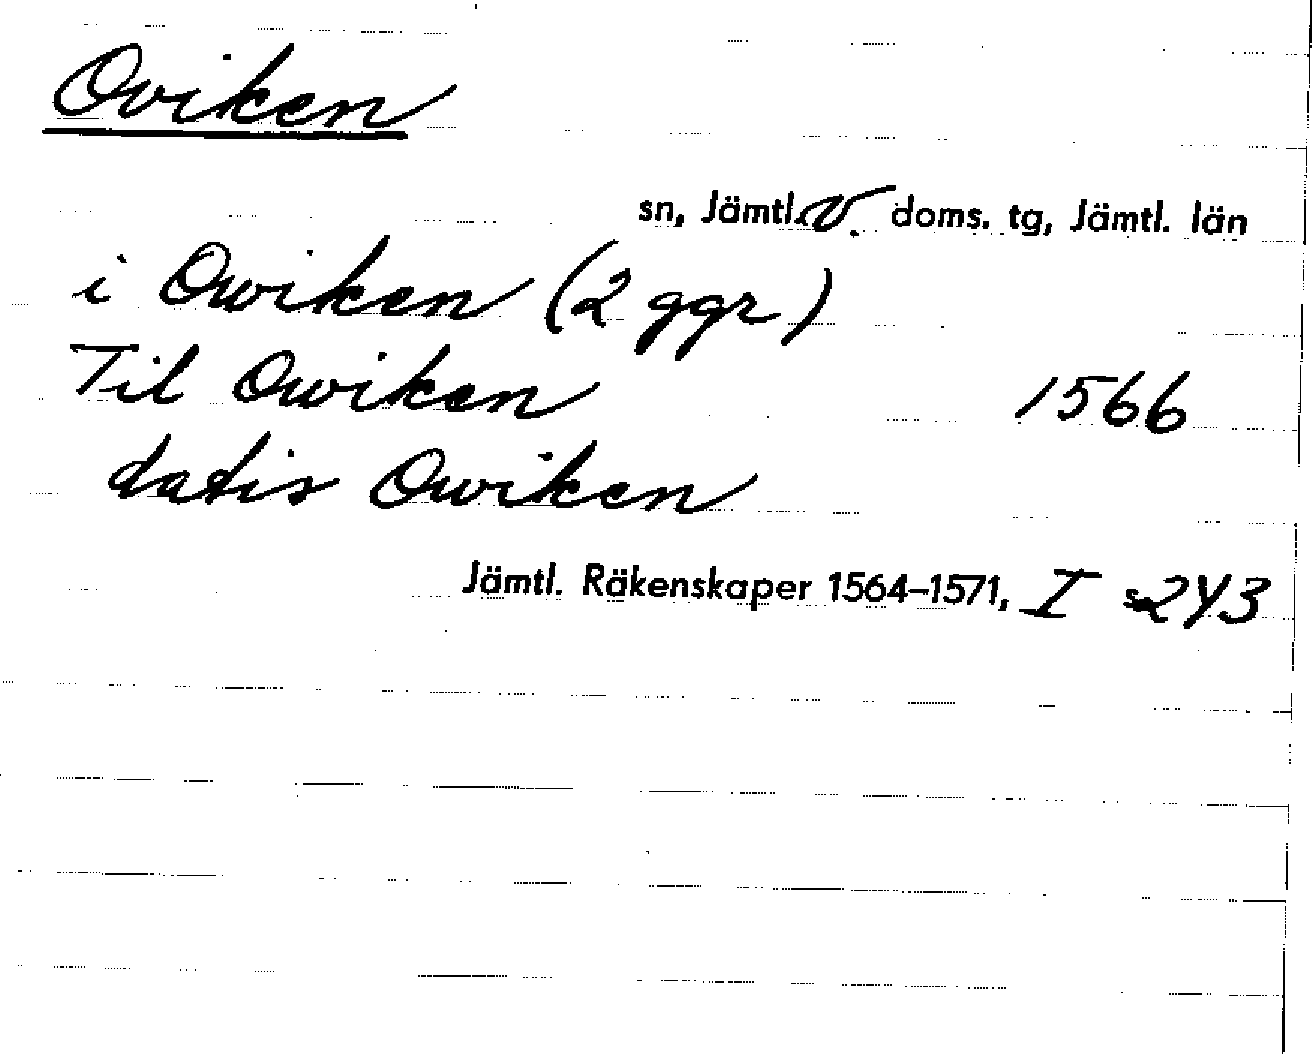 Oviken
sn, Jämtl. V. doms. tg, Jämtl. län
i Owiken (2 ggr)
Til Owiken 1566
datis Owiken
Jämtl. Räkenskaper 1564–1571, I s. 243